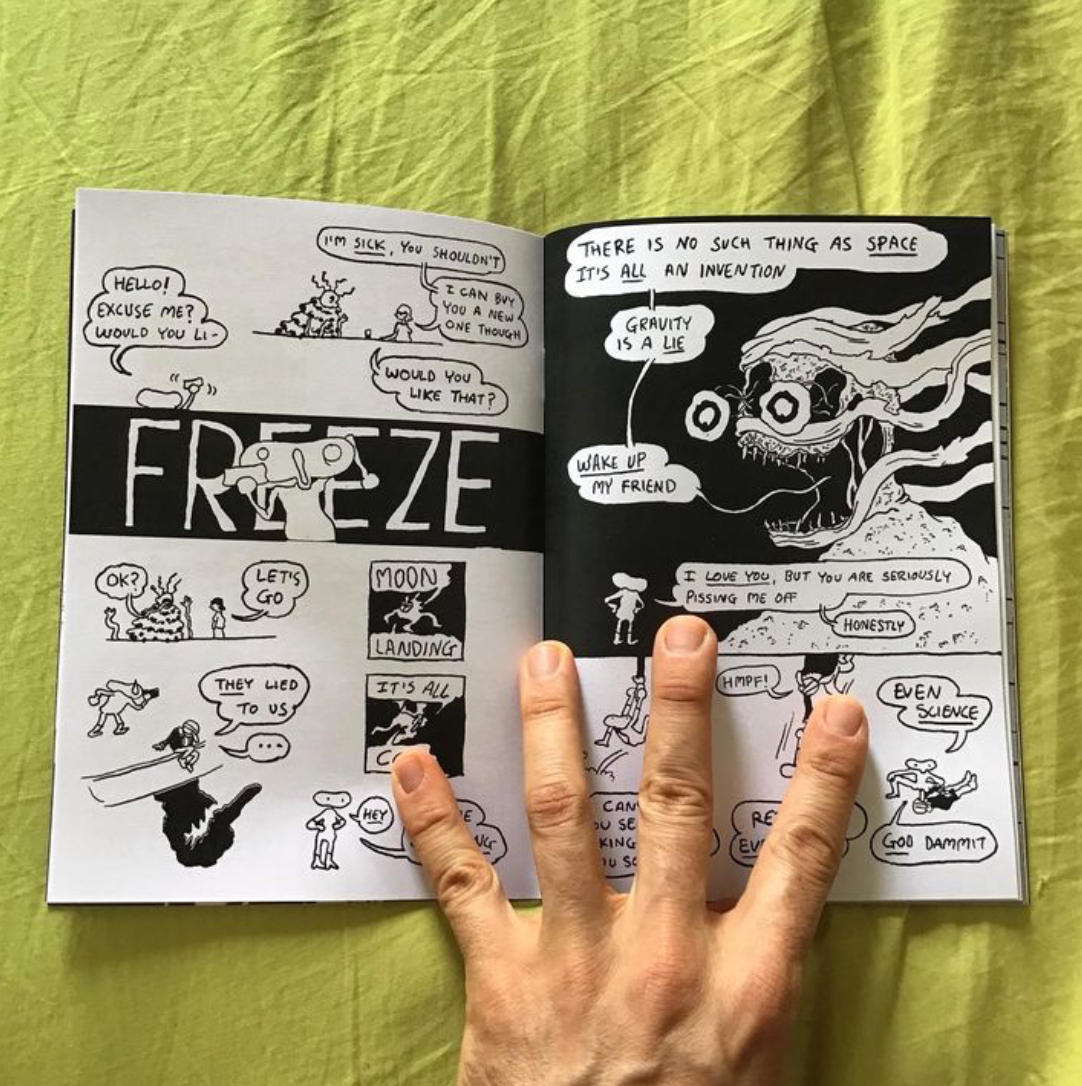 I'M SICK, YOU SHOULDN'T
HELLO!
EXCUSE ME?
WOULD YOU LI-
I CAN BUY
YOU A NEW
ONE THOUGH
WOULD YOU
LIKE THAT?
FREEZE
OK?
LET'S
GO
MOON
LANDING
THEY LIED
TO US
...
IT'S ALL
HEY
THERE IS NO SUCH THING AS SPACE
IT'S ALL AN INVENTION
GRAVITY
IS A LIE
WAKE UP
MY FRIEND
I LOVE YOU, BUT YOU ARE SERIOUSLY
PISSING ME OFF
HONESTLY
HMPF!
EVEN
SCIENCE
GOD DAMMIT